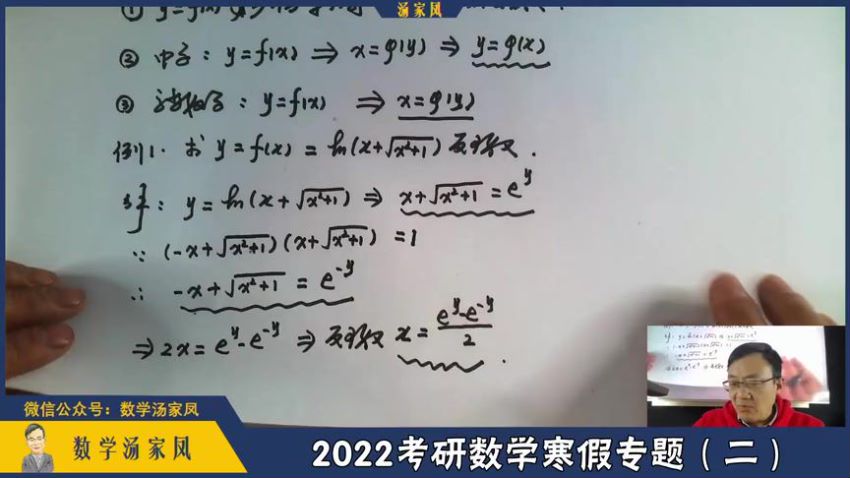 汤家凤
① y=f(x)
② 中学：y=f(x) ⇒ x=φ(y) ⇒ y=φ(x)
③ 高数：y=f(x) ⇒ x=φ(y)
例1. 求 y=f(x)=ln(x+√x²+1) 反函数.
解：y=ln(x+√x²+1) ⇒ x+√x²+1=e^y
∵ (-x+√x²+1)(x+√x²+1)=1
∴ -x+√x²+1=e^-y
⇒2x=e^y-e^-y ⇒ 反函数 x=(e^y-e^-y)/2.
微信公众号：数学汤家凤
数学汤家凤
2022考研数学寒假专题（二）